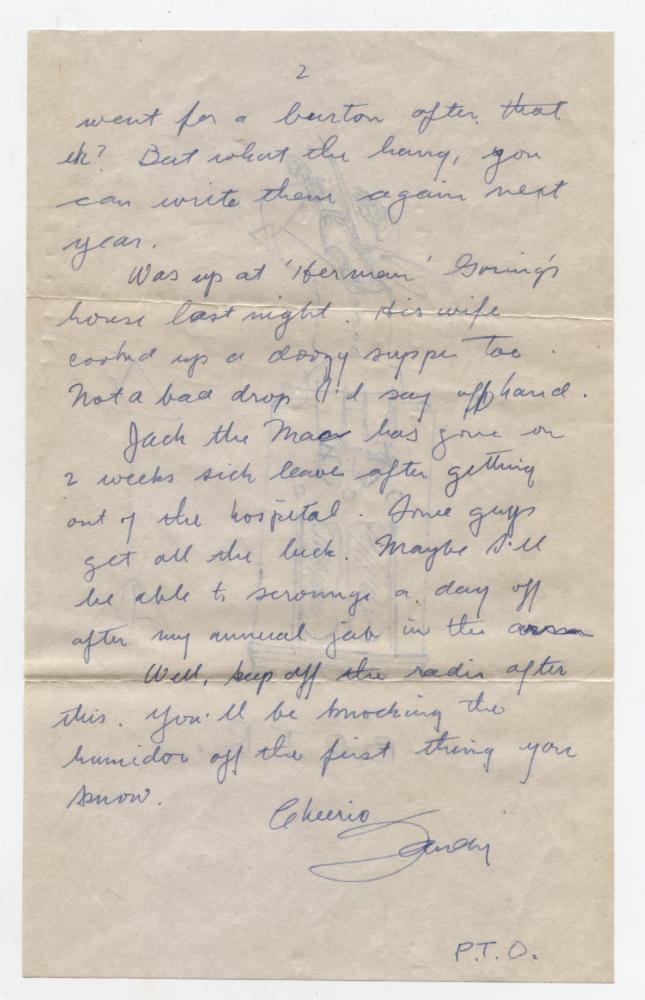 2
went for a burton after that
eh? But what the hang, you
can write them again next
year.
Was up at 'Herman' Goring's
house last night. His wife
cooked up a doozy supper too.
Not a bad drop I'd say offhand.
Jack the Mac has gone on
2 weeks sick leave after getting
out of the hospital. Some guys
get all the luck. Maybe I'll
be able to scrounge a day off
after my annual jab in the
Well, keep off the radio after
this. You'll be knocking the
humidor off the first thing you
know.
Cheerio
Sandy
P.T.O.